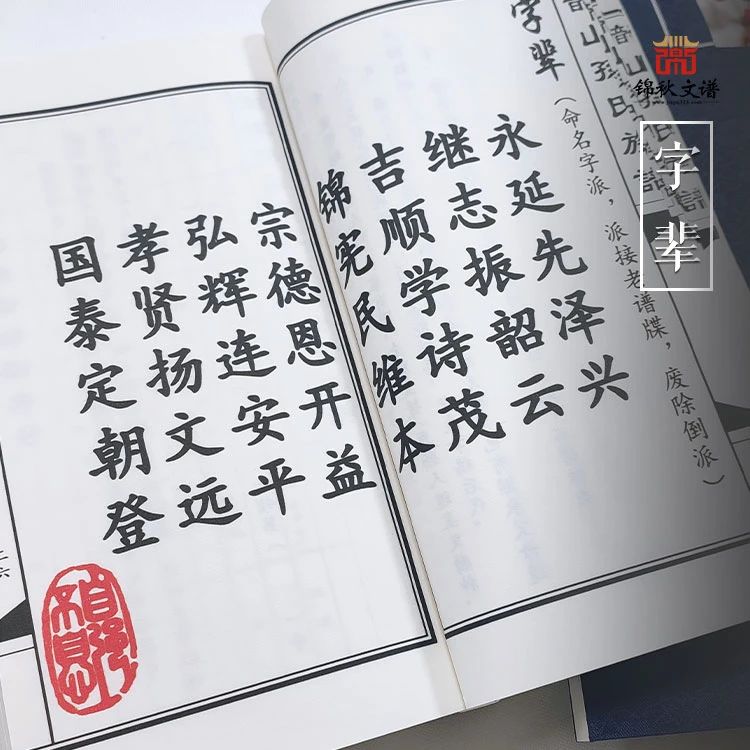 锦秋文谱
字辈
字辈
（命名字派，派接老谱牒，废除倒派）
永延先泽兴
继志振韶云
吉顺学诗茂
锦宪民维本
宗德恩开益
弘辉连安平
孝贤扬文远
国泰定朝登
自强不息